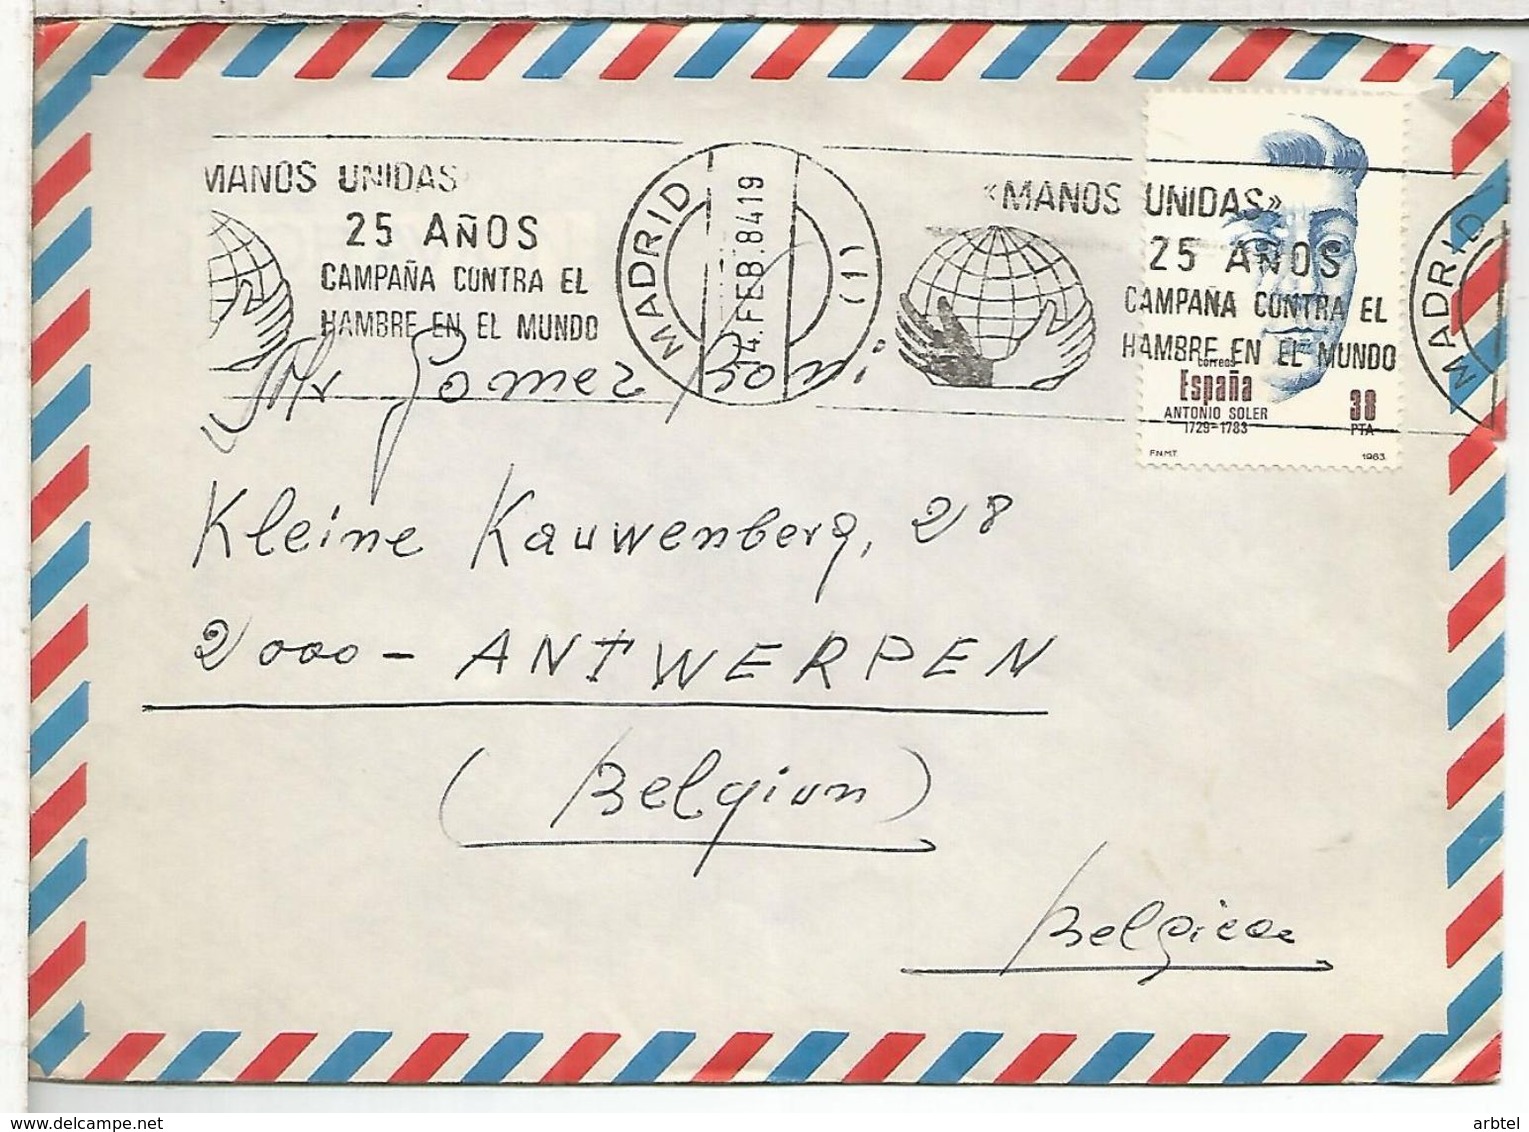 MANOS UNIDAS
25 AÑOS
CAMPAÑA CONTRA EL
HAMBRE EN EL MUNDO
MADRID
14.FEB.84 19
(1)
«MANOS UNIDAS»
25 AÑOS
CAMPAÑA CONTRA EL
HAMBRE EN EL MUNDO
MADRID
correos
España
ANTONIO SOLER
1729-1783
38
PTA
F.N.M.T.
1983
Mr Gomez Romi
Kleine Kauwenberg, 28
2000 - ANTWERPEN
(Belgium)
Belgica
arbtel